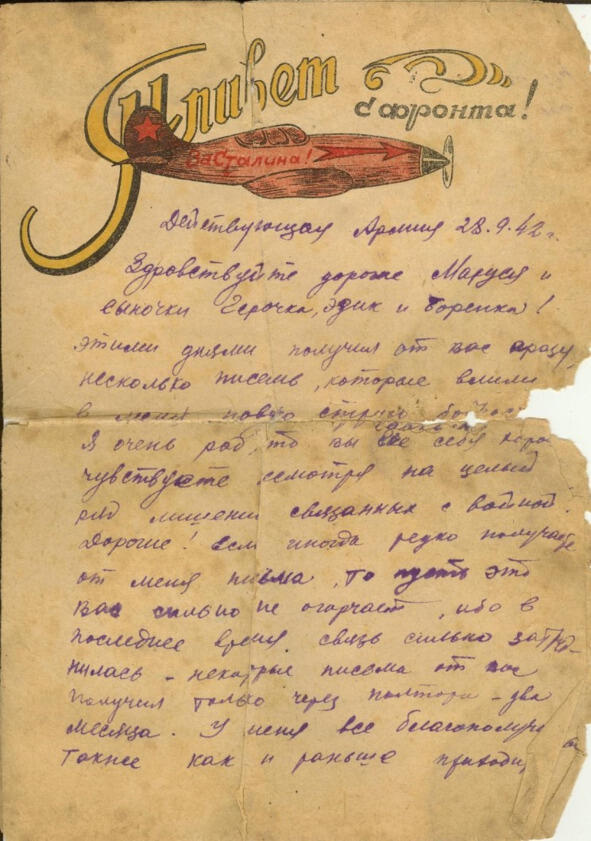 Привет
с фронта!
За Сталина!
Действующая Армия 28.9.42 г.
Здравствуйте дорогие Маруся и
сыночки Герочка, Эдик и Боренка!
этими днями получил от вас сразу
несколько писемь, которые влили
в меня новую
Я очень рад, что вы все себя
чувствуете несмотря на целый
ряд лишений связанных с войной.
Дорогие! если иногда редко получаете
от меня письма, то пусть это
вас сильно не огорчает, ибо в
последнее время связь сильно затруд-
нилась - некоторые писема от вас
получил только через полтора - два
месяца. У меня все благополучн
также как и раньше приходи